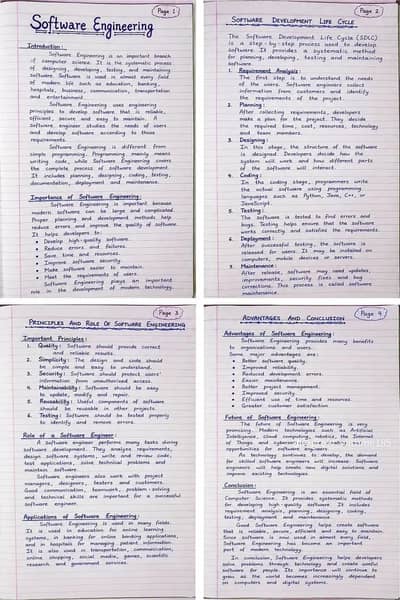 Page 1
Software Engineering
Introduction:
Software Engineering is an important branch
of computer science. It is the systematic process
of designing, developing, testing, and maintaining
software. Software is used in almost every field
of modern life such as education, banking,
hospitals, business, communication, transportation
and entertainment.
Software Engineering uses engineering
principles to develop software that is reliable,
efficient, secure and easy to maintain. A
software engineer studies the needs of users
and develop software according to those
requirements.
Software Engineering is different from
simple programming. Programming mainly means
writing code, while Software Engineering covers
the complete process of software development.
It includes planning, designing, coding, testing,
documentation, deployment and maintenance.
Importance of Software Engineering:
Software Engineering is important because
modern software can be large and complicated.
Proper planning and development methods help
reduce errors and improve the quality of software.
It helps developers to:
• Develop high-quality software.
• Reduce errors and failures.
• Save time and resources.
• Improve software security.
• Make software easier to maintain.
• Meet the requirements of users.
Software Engineering plays an important
role in the development of modern technology.
Page 2
Software Development Life Cycle
The Software Development Life Cycle (SDLC)
is a step-by-step process used to develop
software. It provides a systematic method
for planning, developing, testing and maintaining
software.
1. Requirement Analysis:
The first step is to understand the needs
of the users. Software engineers collect
information from customers and identify
the requirements of the project.
2. Planning:
After collecting requirements, developers
make a plan for the project. They decide
the required time, cost, resources, technology
and team members.
3. Designing:
In this stage, the structure of the software
is designed. Developers decide how the
system will work and how different parts
of the software will interact.
4. Coding:
In the coding stage, programmers write
the actual software using programming
languages such as Python, Java, C++, or
JavaScript.
5. Testing:
The software is tested to find errors and
bugs. Testing helps ensure that the software
works correctly and satisfies the requirements.
6. Deployment:
After successful testing, the software is
released for users. It may be installed on
computers, mobile devices or servers.
Maintenance:
After release, software may need updates,
improvements, security fixes and bug
corrections. This process is called software
maintenance.
Page 3
Principles And Role Of Software Engineering
Important Principles:
1. Quality: Software should provide correct
and reliable results.
2. Simplicity: The design and code should
be simple and easy to understand.
3. Security: Software should protect users'
information from unauthorised access.
4. Maintainability: Software should be easy
to update, modify and repair.
5. Reusability: Useful components of software
should be reusable in other projects.
6. Testing: Software should be tested properly
to identify and remove errors.
Role of a Software Engineer:
A Software engineer performs many tasks during
software development. They analyze requirements,
design software systems, write and review code,
test applications, solve technical problems and
maintain software.
Software engineers also work with project
managers, designers, testers and customers.
Good communication, teamwork, problem solving
and technical skills are important for a successful
software engineer.
Applications of Software Engineering:
Software Engineering is used in many fields.
It is used in education for online learning
systems, in banking for online banking applications,
in hospitals for managing patient information.
It is also used in transportation, communication,
online shopping, social media, games, scientific
research and government services.
Page 4
Advantages And Conclusion
Advantages of Software Engineering:
Software Engineering provides many benefits
to organisations and users.
Some major advantages are:
• Better software quality.
• Improved reliability.
• Reduced development errors.
• Easier maintenance.
• Better project management.
• Improved security.
• Efficient use of time and resources.
• Greater customer satisfaction.
Future of Software Engineering:
The future of Software Engineering is very
promising. Modern technologies such as Artificial
Intelligence, cloud computing, robotics, the Internet
of Things and
opportunities for software engineers.
As technology continues to develop, the demand
for skilled software engineers will increase. Software
engineers will help create new digital solutions and
improve existing technologies.
Conclusion:
Software Engineering is an essential field of
Computer Science. It provides systematic methods
for developing high quality software. It includes
requirement analysis, planning, designing, coding,
testing, deployment and maintenance.
Good Software Engineering helps create software
that is reliable, secure, efficient and easy to maintain.
Since software is now used in almost every field,
Software Engineering has become an important
part of modern technology.
In conclusion, Software Engineering helps developers
solve problems through technology and create useful
software for people. Its importance will continue to
grow as the world becomes increasingly dependent
on computers and digital systems.